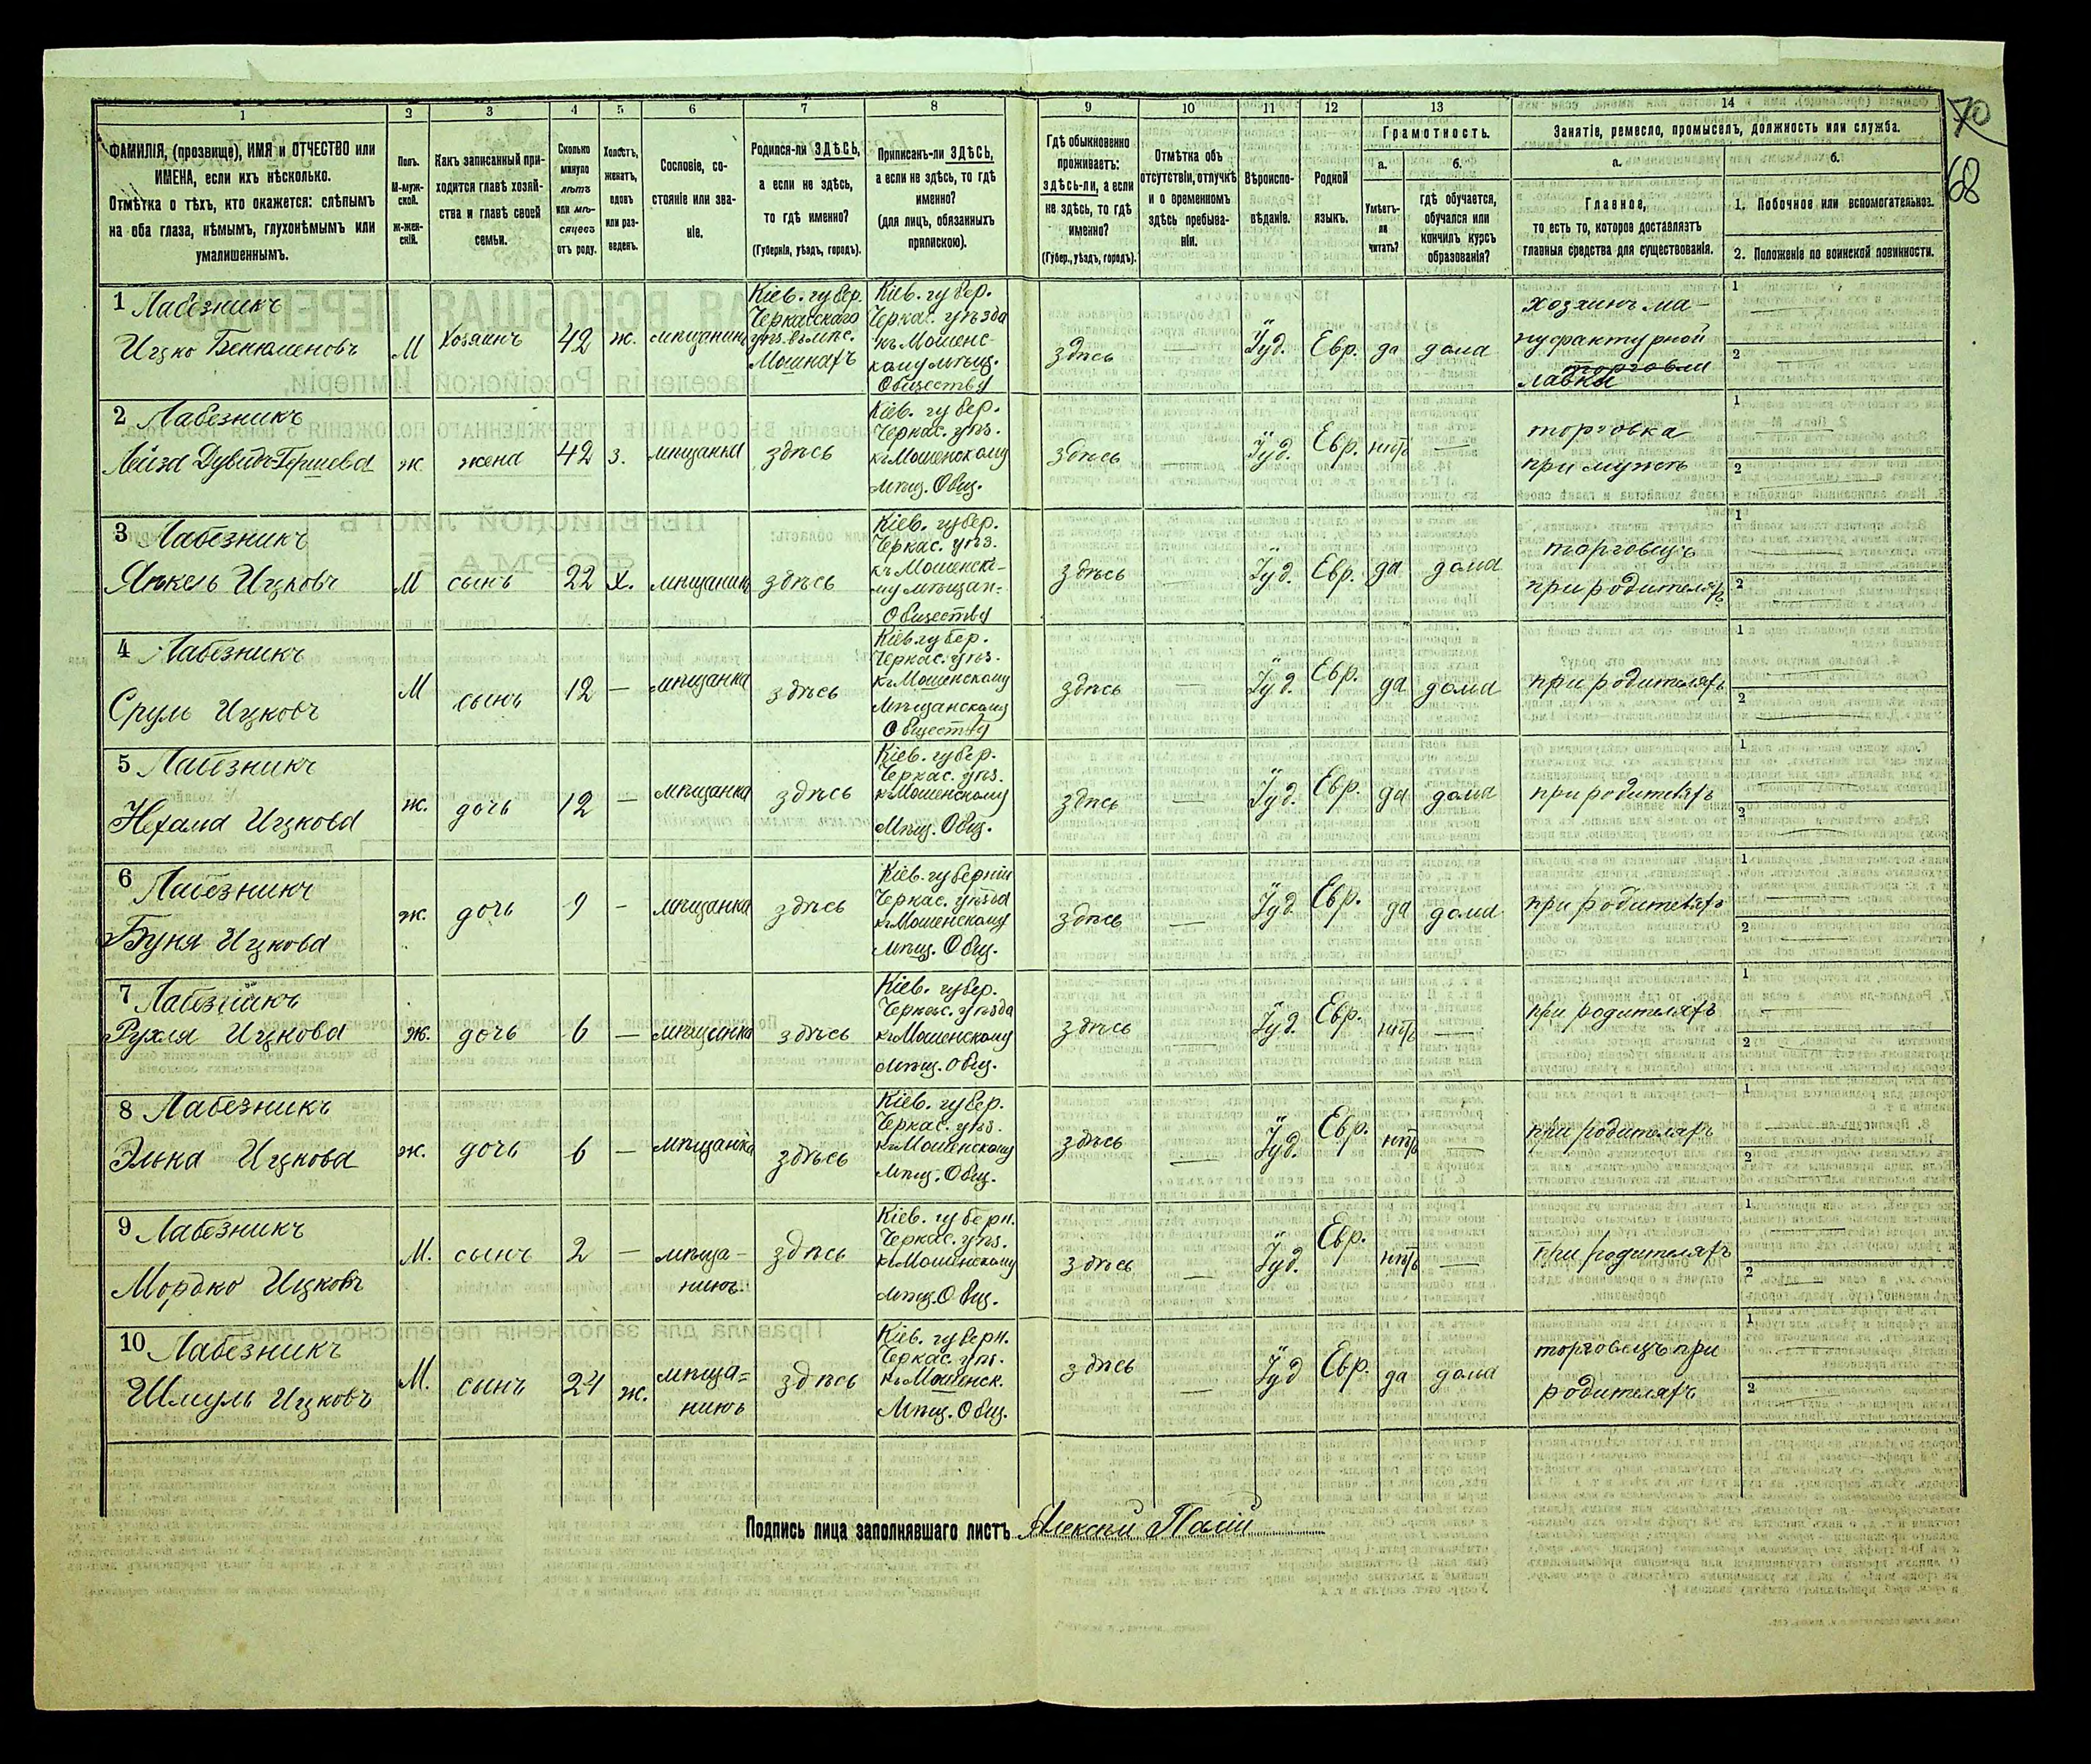 1 2 3 4 5 6 7 8 9 10 11 12 13 14
70
68
ФАМИЛІЯ, (прозвище), ИМЯ и ОТЧЕСТВО или
ИМЕНА, если ихъ нѣсколько.
Отмѣтка о тѣхъ, кто окажется: слѣпымъ
на оба глаза, нѣмымъ, глухонѣмымъ или
умалишеннымъ.
Полъ.
М-муж-
ской.
Ж-жен-
скій.
Какъ записанный при-
ходится главѣ хозяй-
ства и главѣ своей
семьи.
Сколько
минуло
лѣтъ
или мѣ-
сяцевъ
отъ роду.
Холостъ,
женатъ,
вдовъ
или раз-
веденъ.
Сословіе, со-
стояніе или зва-
ніе.
Родился-ли ЗДѢСЬ,
а если не здѣсь,
то гдѣ именно?
(Губернія, уѣздъ, городъ).
Приписанъ-ли ЗДѢСЬ,
а если не здѣсь, то гдѣ
именно?
(для лицъ, обязанныхъ
припискою).
Гдѣ обыкновенно
проживаетъ:
здѣсь-ли, а если
не здѣсь, то гдѣ
именно?
(Губер., уѣздъ, городъ).
Отмѣтка объ
отсутствіи, отлучкѣ
и о временномъ
здѣсь пребыва-
ніи.
Вѣроиспо-
вѣданіе.
Родной
языкъ.
Грамотность.
а.
Умѣетъ-
ли
читать?
б.
гдѣ обучается,
обучался или
кончилъ курсъ
образованія?
Занятіе, ремесло, промыселъ, должность или служба.
а.
Главное,
то есть то, которое доставляетъ
главныя средства для существованія.
б.
1. Побочное или вспомогательное.
2. Положеніе по воинской повинности.
1 Лабезникъ
Ицко Бенюменовъ
М
Хозяинъ
42
ж.
мѣщанинъ
Кіев. губер.
Черкасскаго
уѣз. въ мѣс.
Мошнахъ
Кіев. губер.
Черкас. уѣзда
къ Мошенс-
кому мѣщ.
Обществу
здѣсь
—
Іуд.
Евр.
да
дома
хозяинъ ма-
нуфактурной
торговли
лавки
1
2
2 Лабезникъ
Лейза Дувидъ-Гершева
ж
жена
42
з.
мѣщанка
здѣсь
Кіев. губер.
Черкас. уѣз.
къ Мошенскому
мѣщ. Общ.
здѣсь
—
Іуд.
Евр.
нѣтъ
—
торговка
при мужѣ
1
2
3 Лабезникъ
Янкель Ицковъ
М
сынъ
22
х.
мѣщанинъ
здѣсь
Кіев. губер.
Черкас. уѣз.
къ Мошенско-
му мѣщан-
Обществу
здѣсь
Іуд.
Евр.
да
дома
торговецъ
при родителяхъ
1
2
4 Лабезникъ
Сруль Ицковъ
М
сынъ
12
—
мѣщанка
здѣсь
Кіев. губер.
Черкас. уѣз.
къ Мошенскому
Мѣщанскому
Обществу
здѣсь
—
Іуд.
Евр.
да
дома
при родителяхъ
1
2
5 Лабезникъ
Нехама Ицкова
ж.
дочь
12
—
мѣщанка
здѣсь
Кіев. губер.
Черкас. уѣз.
къ Мошенскому
Мѣщ. Общ.
здѣсь
—
Іуд.
Евр.
да
дома
при родителяхъ
1
2
6 Лабезникъ
Буня Ицкова
ж.
дочь
9
—
мѣщанка
здѣсь
Кіев. губерніи
Черкас. уѣзда
къ Мошенскому
Мѣщ. Общ.
здѣсь
—
Іуд.
Евр.
да
дома
при родителяхъ
1
2
7 Лабезникъ
Рухля Ицкова
ж.
дочь
6
—
мѣщанка
здѣсь
Кіев. губер.
Черкас. уѣзда
къ Мошенскому
мѣщ. общ.
здѣсь
—
Іуд.
Евр.
нѣтъ
—
при родителяхъ
1
2
8 Лабезникъ
Элька Ицкова
ж.
дочь
6
—
мѣщанка
здѣсь
Кіев. губер.
Черкас. уѣз.
къ Мошенскому
Мѣщ. Общ.
здѣсь
—
Іуд.
Евр.
нѣтъ
—
при родителяхъ
1
2
9 Лабезникъ
Мордко Ицковъ
М.
сынъ
2
—
мѣща-
нинъ
здѣсь
Кіев. губерн.
Черкас. уѣз.
къ Мошенскому
Мѣщ. Общ.
здѣсь
—
Іуд.
Евр.
нѣтъ
—
при родителяхъ
1
2
10 Лабезникъ
Шмуль Ицковъ
М.
сынъ
24
ж.
мѣща=
нинъ
здѣсь
Кіев. губерн.
Черкас. уѣз.
къ Мошенск.
Мѣщ. Общ.
здѣсь
—
Іуд
Евр.
да
дома
торговецъ при
родителяхъ
1
2
Подпись лица заполнявшаго листъ Алексѣй Палій